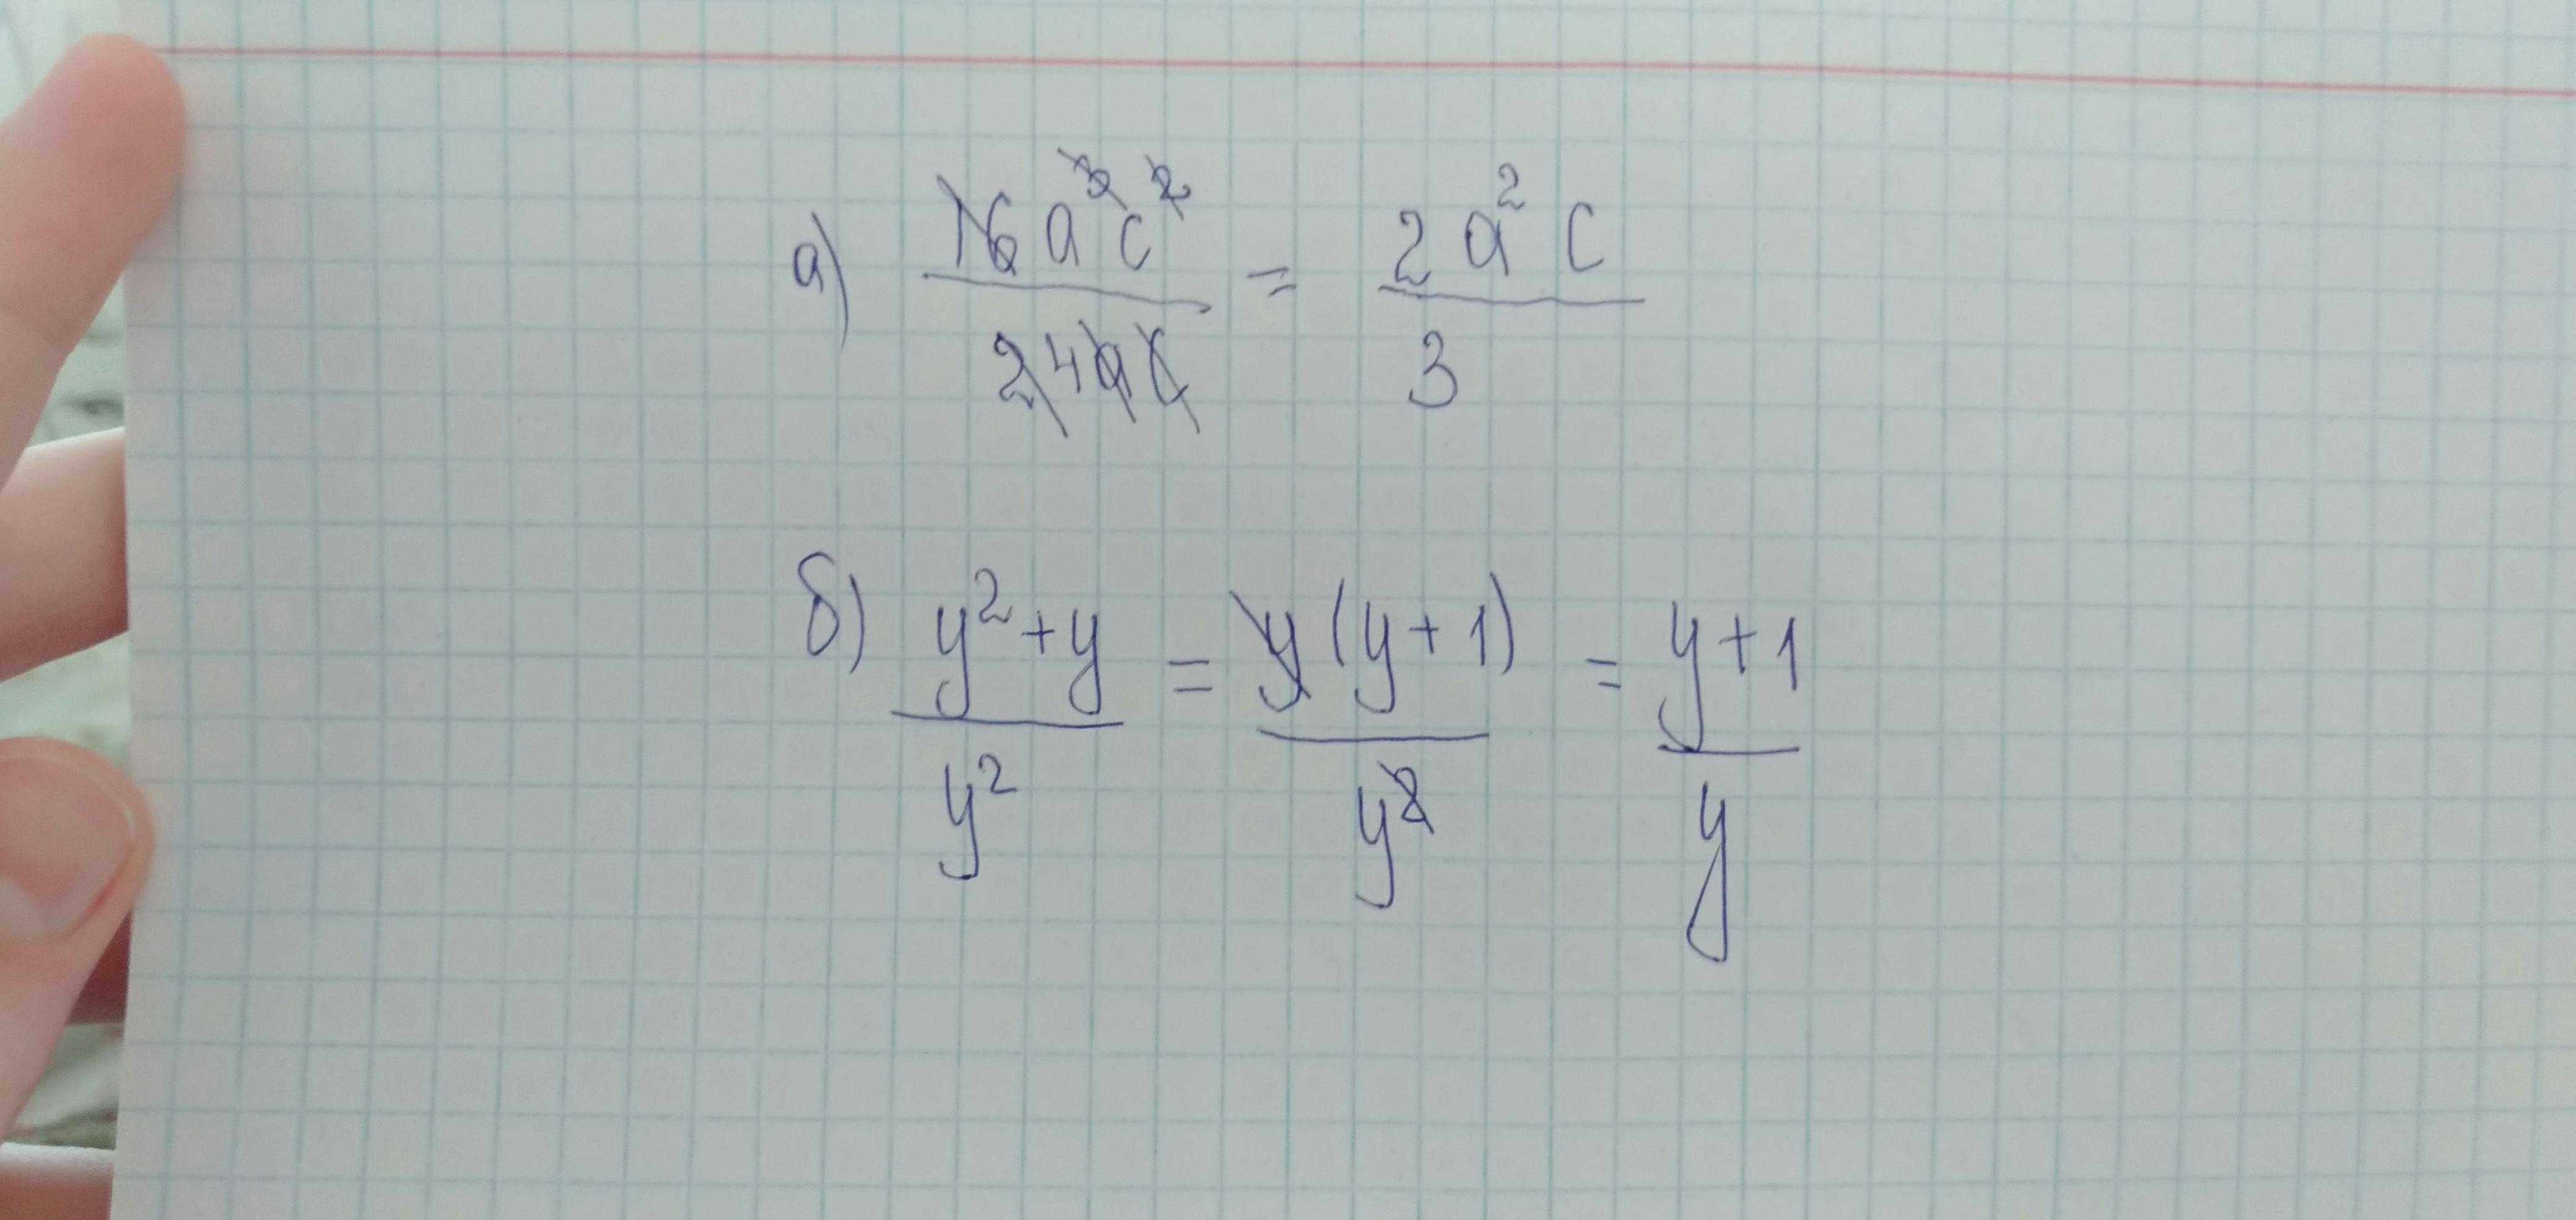 а) 16a³c² / 24ac = 2a²c / 3
б) y²+y / y² = y(y+1) / y² = y+1 / y